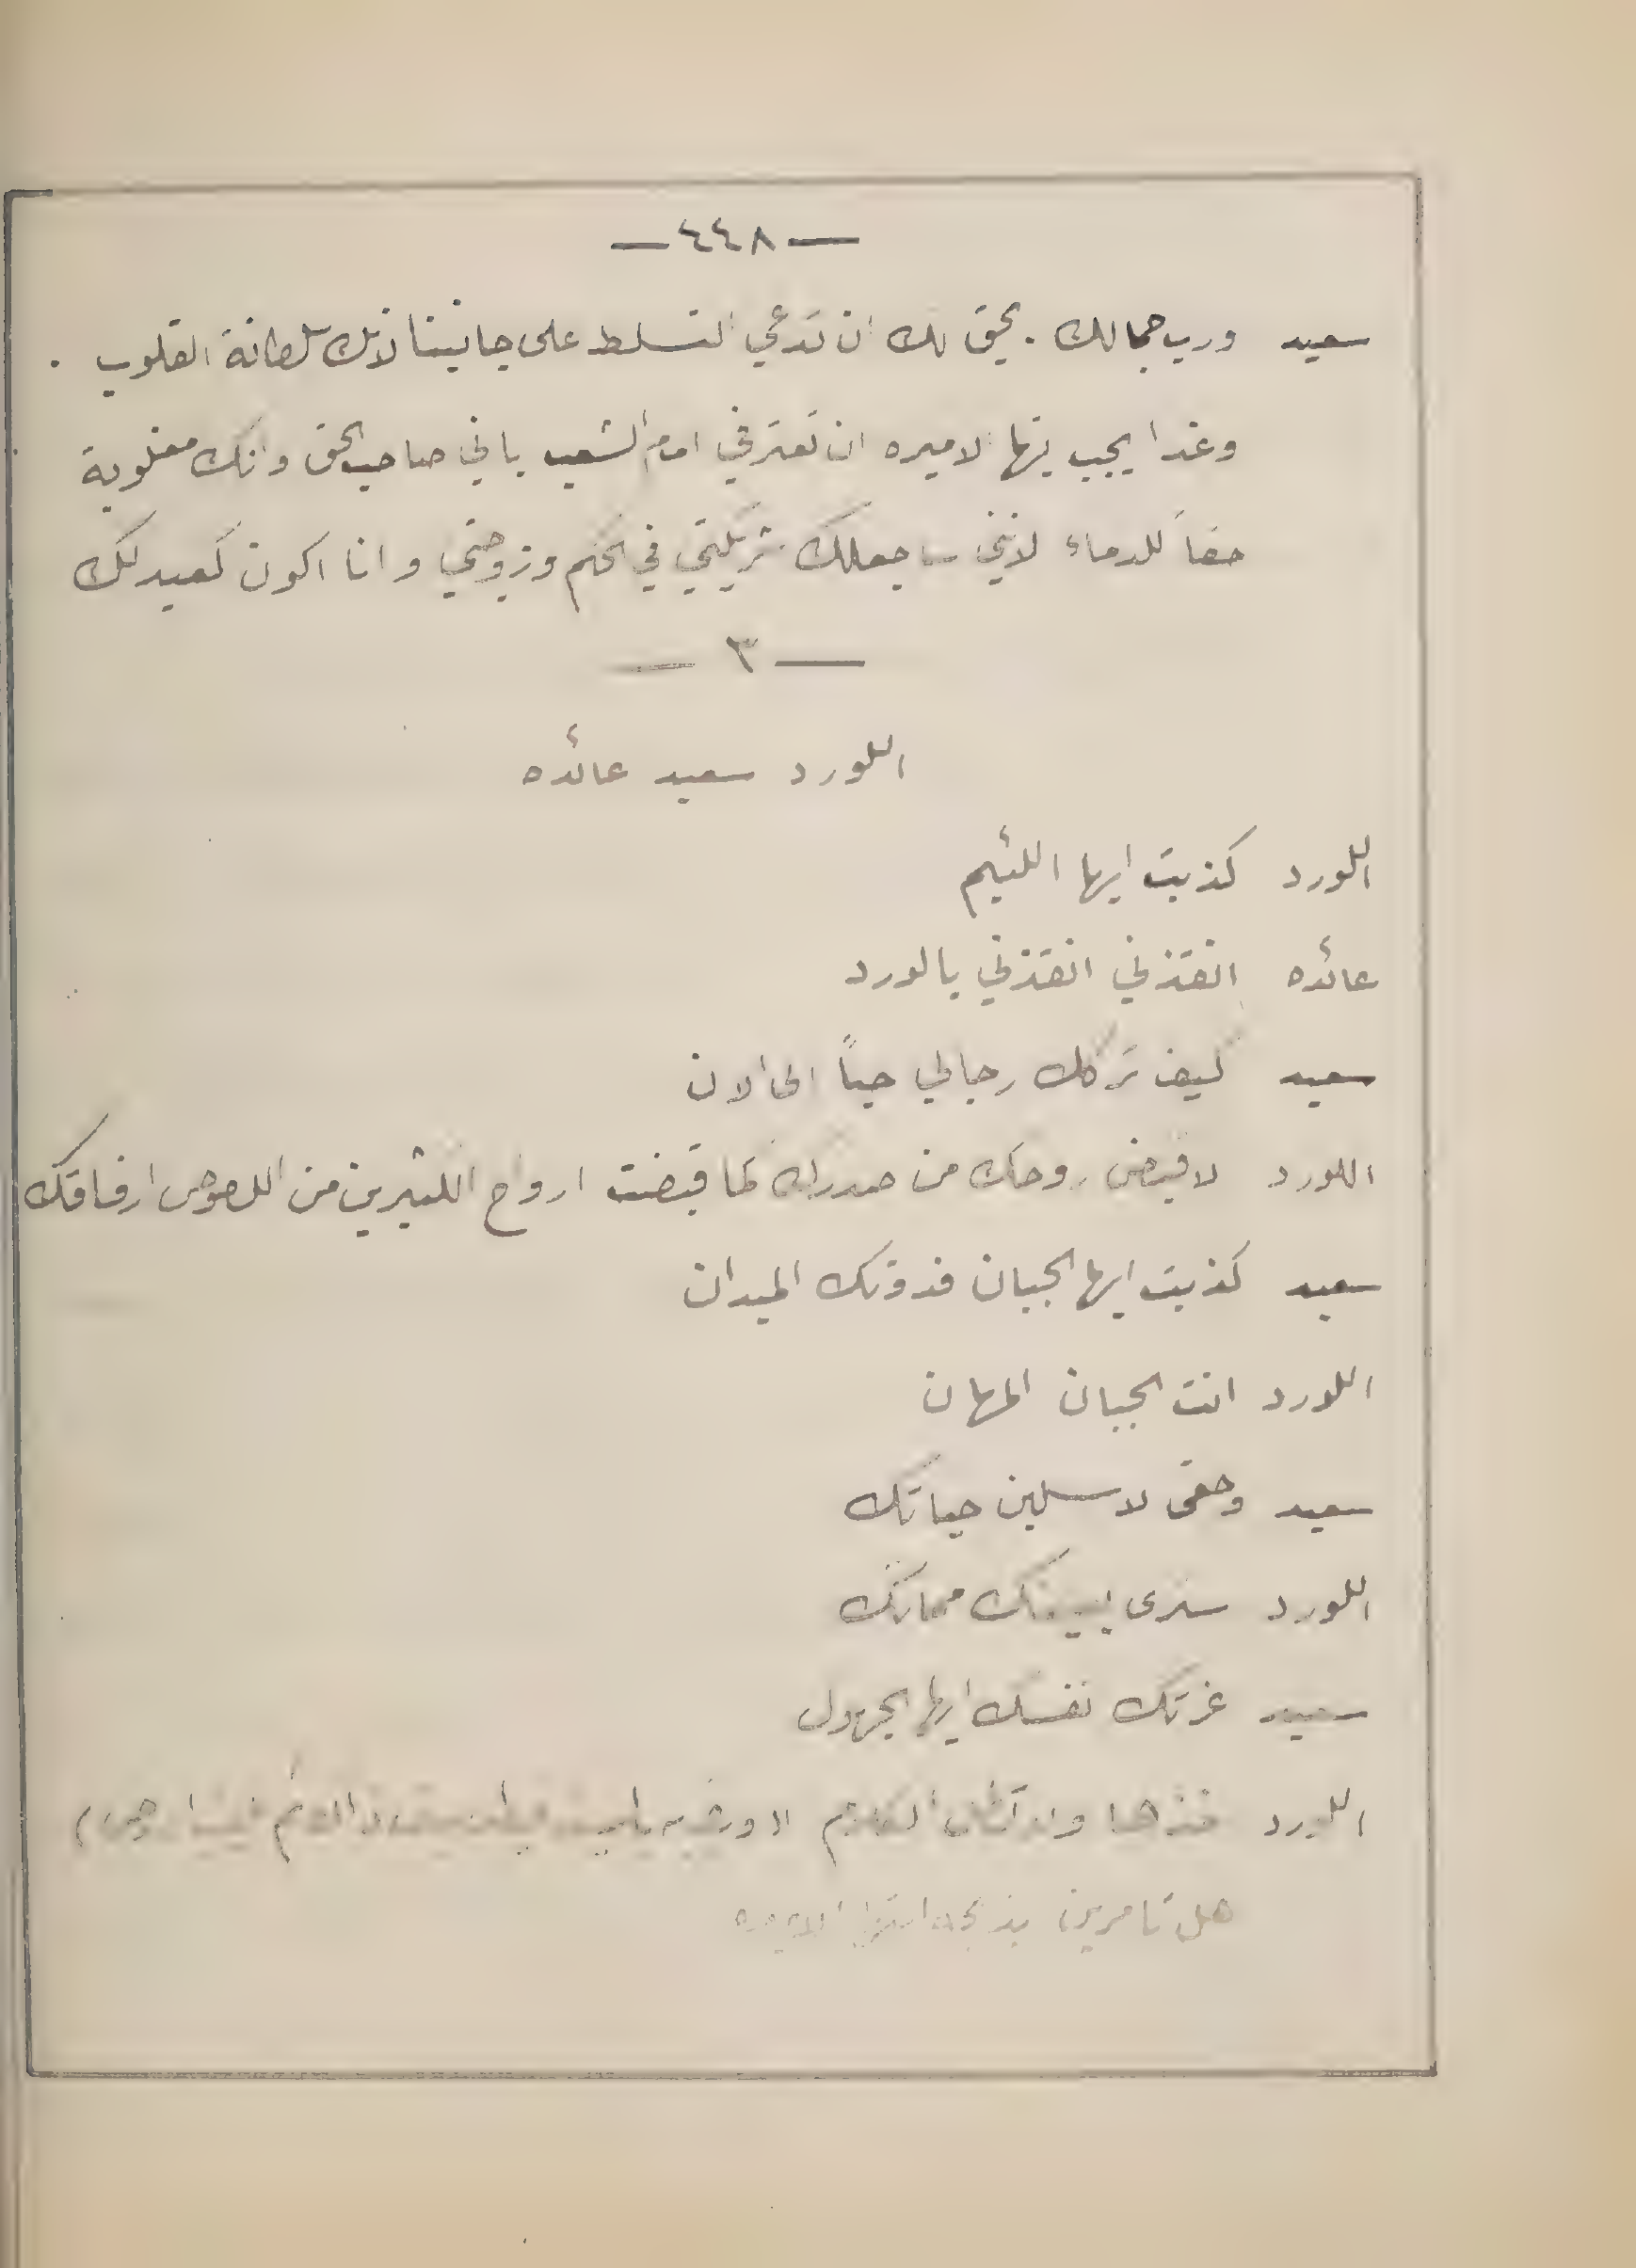 — ٤٤٨ —
سعيد ورب جمالك . يحق لك ان تدعي التسلط على جانبينا لانك سلطانة القلوب .
وغدا يجب ايتها الاميره ان تعترفي امام الشعب باني صاحب الحق وانك مغلوبة
حقناً للدماء لانني ساجعلك شريكتي في الحكم وزوجتي وانا اكون كعبد لك
— ٣ —
اللورد سعيد عائده
اللورد كذبت ايها اللئيم
عائده انقذني انقذني يالورد
سعيد كيف تركك رجالي حياً الى الان
اللورد لاقبض روحك من صدرك كما قبضت ارواح الكثيرين من اللصوص ارفاقك
سعيد كذبت ايها الجبان فدونك الميدان
اللورد انت الجبان المهان
سعيد وحقي لاسلبن حياتك
اللورد سترى بعينك مماتك
سعيد غرتك نفسك ايها الجهول
اللورد خذها ولا تطل الكلام
هل تامرين بذبحه ايتها الاميره